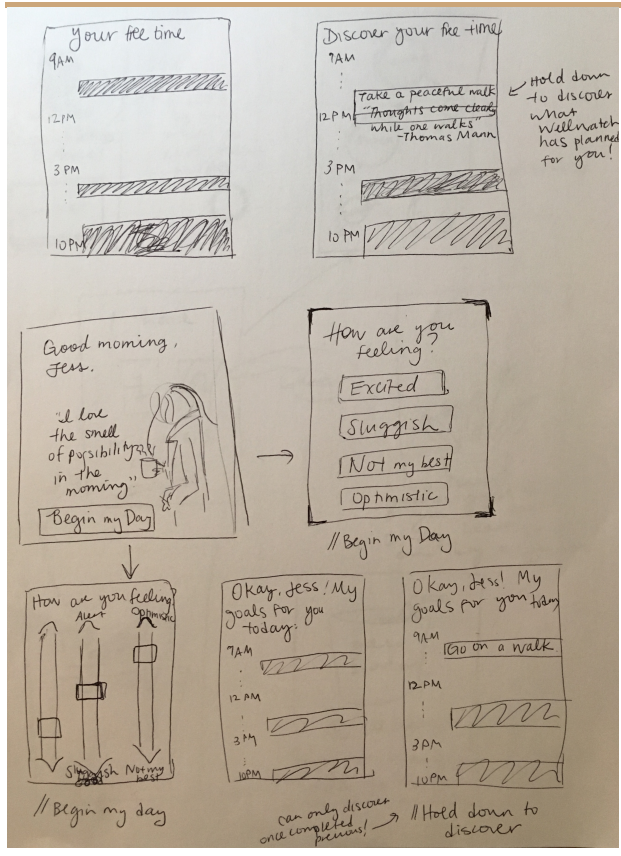 Your free time
9AM
12PM
3 PM
10PM
Discover your free time
9AM
Take a peaceful walk
12PM
"Thoughts come clearly
while one walks"
-Thomas Mann
3 PM
10 PM
Hold down
to discover
what
Wellnatch
has planned
for you!
Good morning,
Jess.
"I love
the smell
of possibility
in the
morning"
Begin my Day
How are you
feeling?
Excited
Sluggish
Not my best
Optimistic
//Begin my Day
How are you feeling?
Alert
Optimistic
Sluggish
Not my
best
//Begin my day
Okay, Jess! My
goals for you
today:
9AM
12 PM
3 PM
10PM
Okay, Jess! My
goals for you today
9AM
Go on a walk
12 PM
3PM
10PM
can only discover
once completed
previous!
//Hold down to
discover